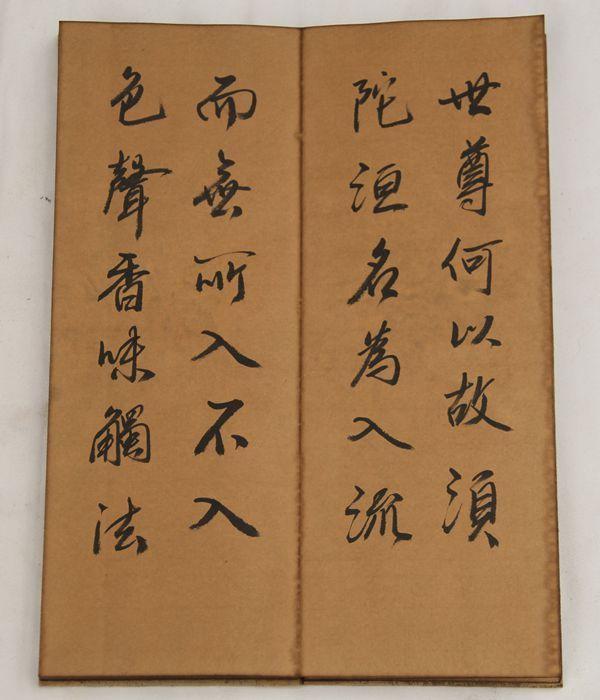 世尊何以故須
陀洹名為入流
而無所入不入
色聲香味觸法